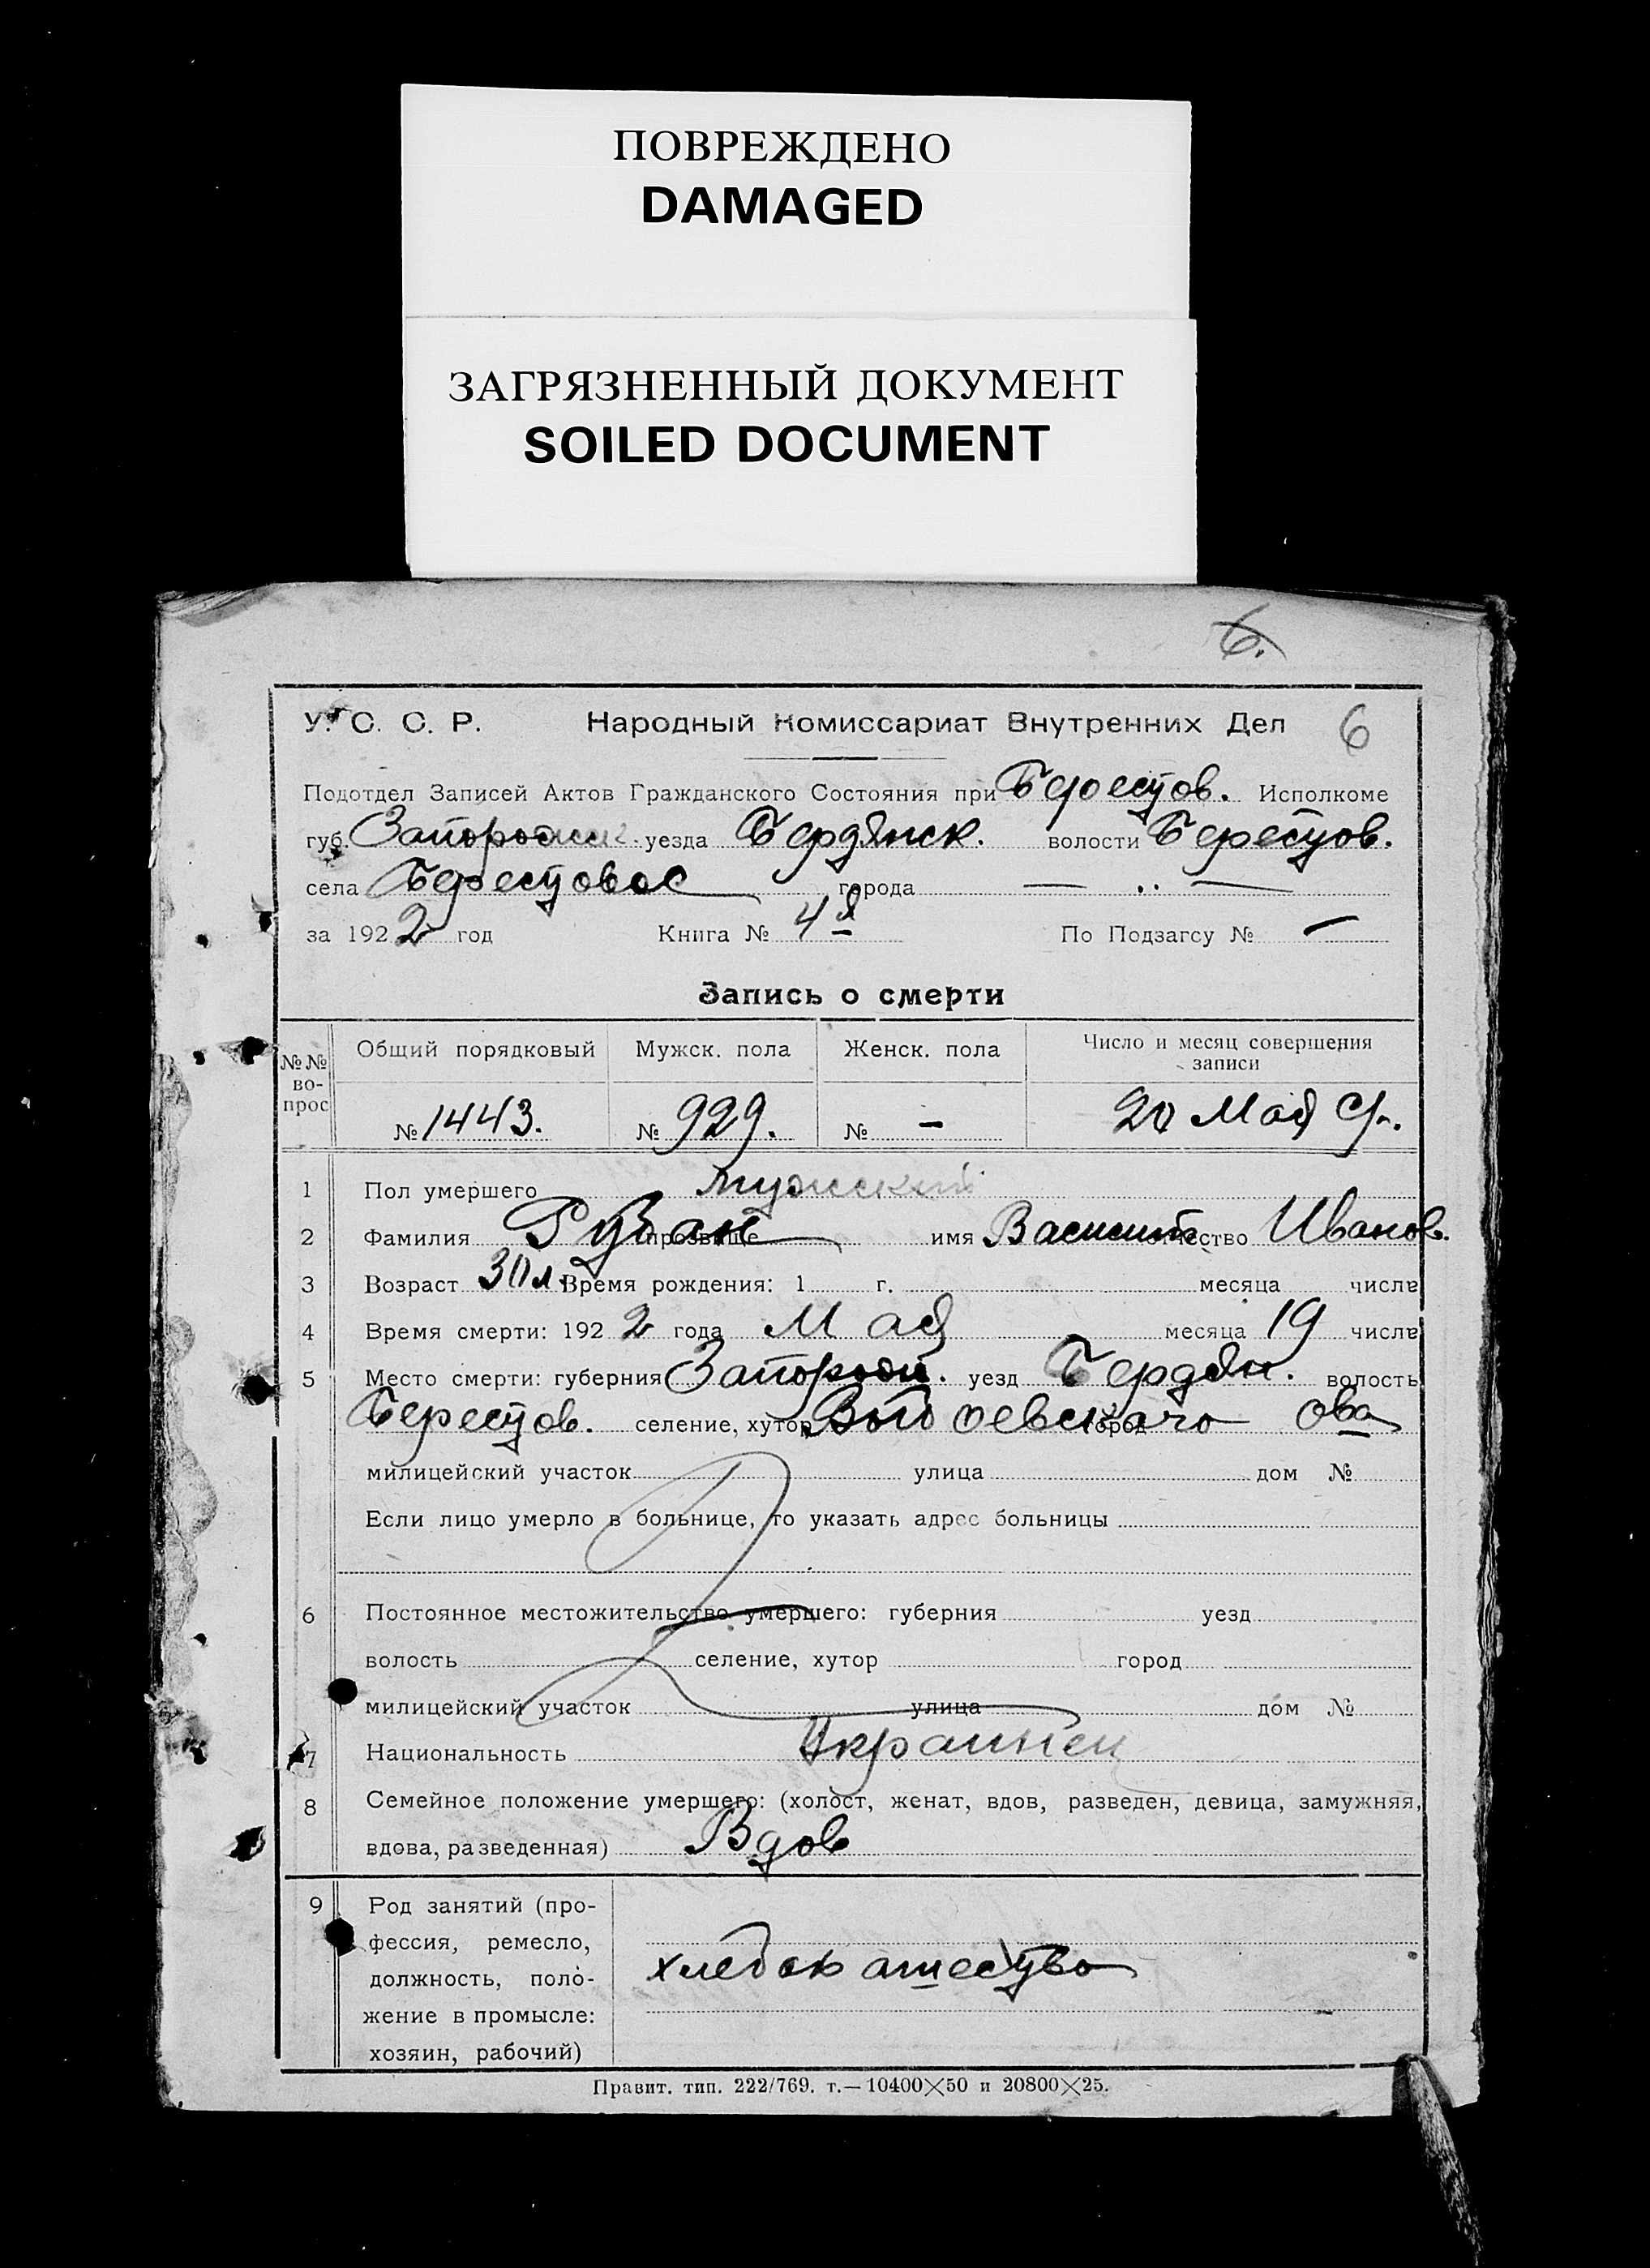 ПОВРЕЖДЕНО
DAMAGED
ЗАГРЯЗНЕННЫЙ ДОКУМЕНТ
SOILED DOCUMENT
6.
У. С. С. Р. Народный Комиссариат Внутренних Дел 6
Подотдел Записей Актов Гражданского Состояния при Берестов. Исполкоме
губ. Запорожск. уезда Бердянск. волости Берестов.
села Берестовое города — „ —
за 1922 год Книга № 4я По Подзагсу № —
Запись о смерти
№№ вопрос Общий порядковый Мужск. пола Женск. пола Число и месяц совершения записи
№ 1443. № 929. № — 20 Мая
1 Пол умершего мужский
2 Фамилия Рубан прозвище имя Василий отчество Иванов.
3 Возраст 30 л. Время рождения: 1 г. месяца числа
4 Время смерти: 1922 года Мая месяца 19 числа
5 Место смерти: губерния Запорож. уезд Бердян. волость
Берестов. селение, хутор город ова
милицейский участок улица дом №
Если лицо умерло в больнице, то указать адрес больницы
6 Постоянное местожительство умершего: губерния уезд
волость селение, хутор город
милицейский участок улица дом №
7 Национальность Украинец
8 Семейное положение умершего: (холост, женат, вдов, разведен, девица, замужняя,
вдова, разведенная) Вдов
9 Род занятий (про-
фессия, ремесло,
должность, поло-
жение в промысле:
хозяин, рабочий)
хлебопашество
Правит. тип. 222/769. т.—10400×50 и 20800×25.